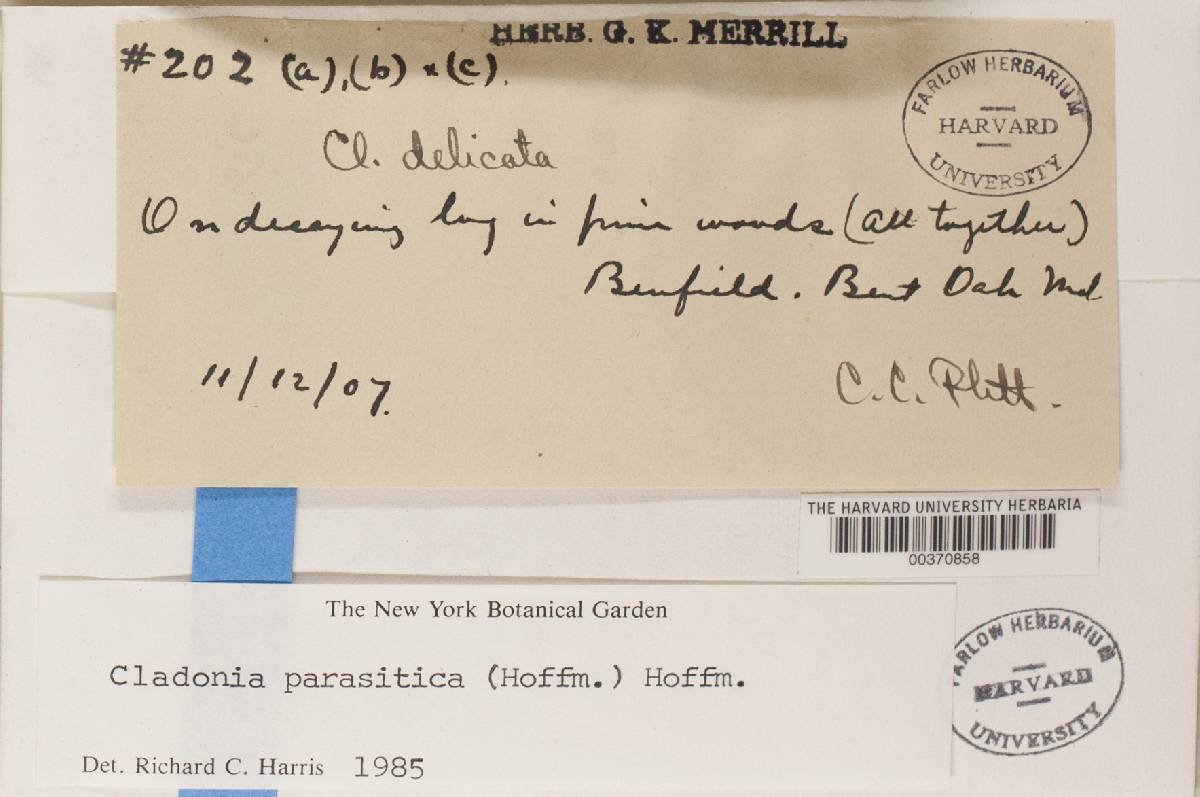 HERB. G. K. MERRILL
#202 (a), (b) & (c).
FARLOW HERBARIUM
HARVARD
UNIVERSITY
Cl. delicata
On decaying log in pine woods (all together)
Benfield. Bent Oak Md
11/12/07.
C. C. Plitt.
THE HARVARD UNIVERSITY HERBARIA
00370858
The New York Botanical Garden
Cladonia parasitica (Hoffm.) Hoffm.
Det. Richard C. Harris 1985
FARLOW HERBARIUM
HARVARD
UNIVERSITY